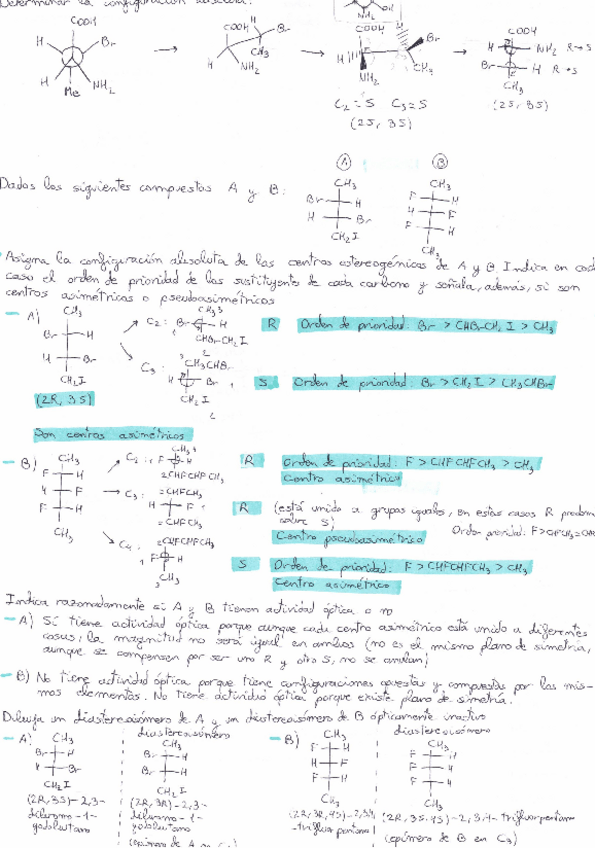 Determinar la configuración absoluta:
COOH
H
Br
H
NH2
Me
COOH
H
Br
CH3
H
NH2
NH2
OH
COOH
H
Br
H
NH2
CH3
C2 = S C3 = S
(2S, 3S)
COOH
H NH2 R→S
Br H R→S
CH3
(2S, 3S)
Dados los siguientes compuestos A y B:
A
CH3
Br H
H Br
CH2I
B
CH3
F H
H F
F H
CH3
Asigna la configuración absoluta de los centros estereogénicos de A y B. Indica en cada
caso el orden de prioridad de los sustituyentes de cada carbono y señala, además, si son
centros asimétricos o pseudoasimétricos
A)
CH3
Br H
H Br
CH2I
(2R, 3S)
C2: Br H
CH3
CHBrCH2I
R Orden de prioridad: Br > CHBrCH2I > CH3
C3:
CH3CHBr
H Br
CH2I
S Orden de prioridad: Br > CH2I > CH3CHBr
Son centros asimétricos
B)
CH3
F H
H F
F H
CH3
C2: F H
CH3
CHFCHFCH3
R Orden de prioridad: F > CHFCHFCH3 > CH3
Centro asimétrico
C3: =CHFCH3
H F
=CHFCH3
R (está unido a grupos iguales, en estos casos R predom
sobre S)
Centro pseudoasimétrico
Orden prioridad: F>CHFCH3=CH
C4: CHFCHFCH3
F H
CH3
S Orden de prioridad: F > CHFCHFCH3 > CH3
Centro asimétrico
Indica razonadamente si A y B tienen actividad óptica o no
A) Sí tiene actividad óptica porque aunque cada centro asimétrico está unido a diferentes
cosas, la magnitud no será igual en ambos (no es el mismo plano de simetría,
aunque se compensen por ser uno R y otro S, no se anulan)
B) No tiene actividad óptica porque tiene configuraciones opuestas y compuestas por los mis-
mos elementos. No tiene actividad óptica porque existe plano de simetría.
Dibuja un diastereoisómero de A y un diastereoisómero de B ópticamente inactivo
A)
CH3
Br H
H Br
CH2I
(2R, 3S)-2,3-
dibromo-1-
yodobutano
diastereoisómero
CH3
Br H
Br H
CH2I
(2R, 3R)-2,3-
dibromo-1-
yodobutano
(epímero de A en C3)
B)
CH3
F H
H F
F H
CH3
(2R, 3R, 4S)-2,3,4
-trifluorpentano
diastereoisómero
CH3
F H
F H
F H
CH3
(2R, 3S, 4S)-2,3,4-trifluorpentano
(epímero de B en C3)